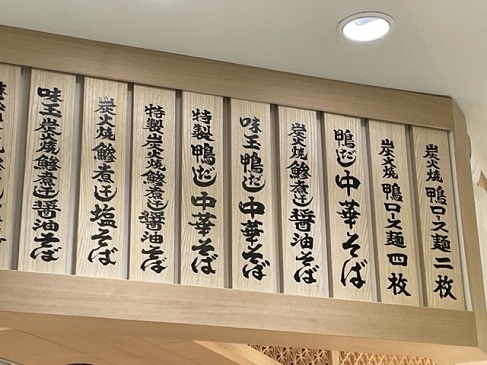 炭火焼鴨ロース麺二枚
炭火焼鴨ロース麺四枚
鴨だし中華そば
炭火焼鯵煮干醤油そば
味玉鴨だし中華そば
特製鴨だし中華そば
特製炭火焼鯵煮干醤油そば
炭火焼鯵煮干塩そば
味玉炭火焼鯵煮干醤油そば